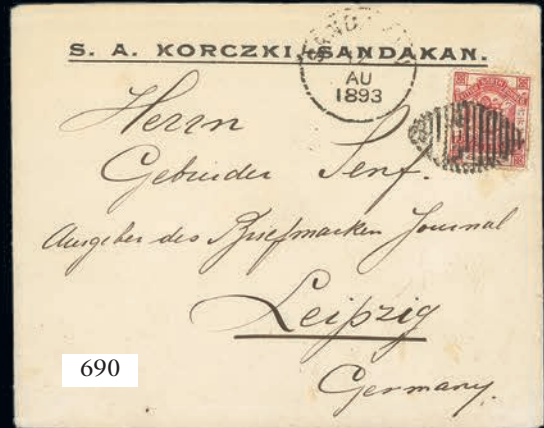 S. A. KORCZKI, SANDAKAN.
AU
1893
Herrn
Gebrüder Senf.
Ausgeber des Briefmarken Journal
Leipzig
Germany.
690